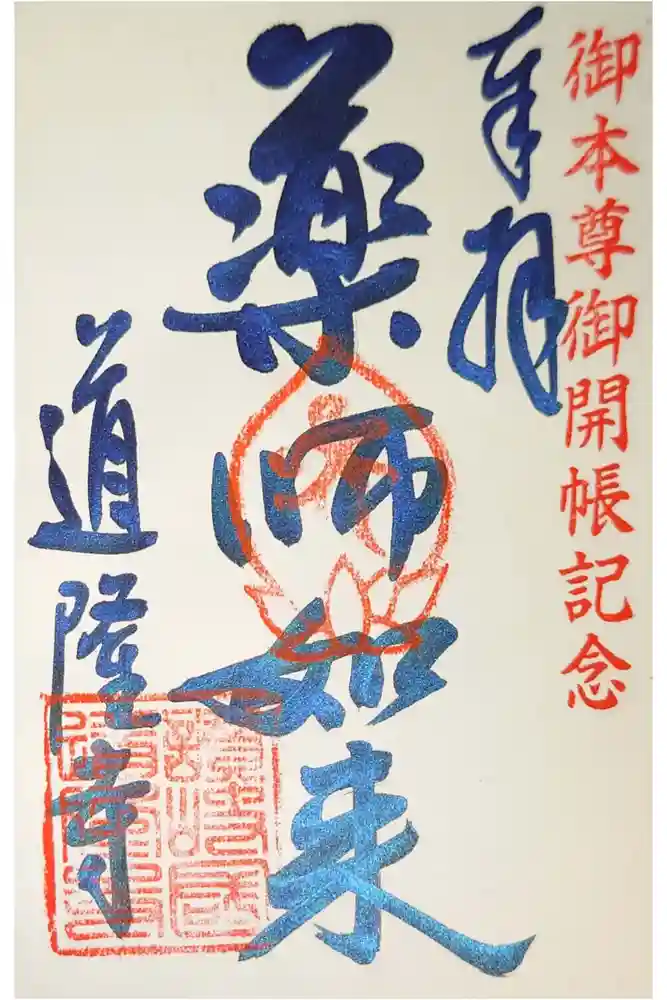 御本尊御開帳記念
奉拝
薬師如来
道隆寺